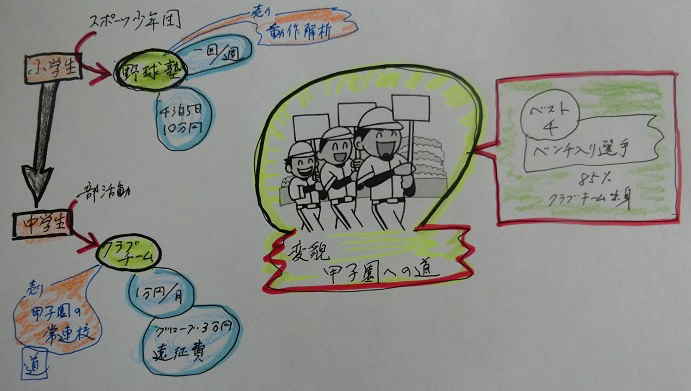 スポーツ少年団
小学生
野球塾
売り
動作解析
一回/週
4泊5日
10万円
中学生
部活動
クラブ
チーム
1万円/月
グローブ・3万円
遠征費
売り
甲子園の
常連校
道
変貌
甲子園への道
ベスト
4
ベンチ入り選手
85%
クラブチーム出身